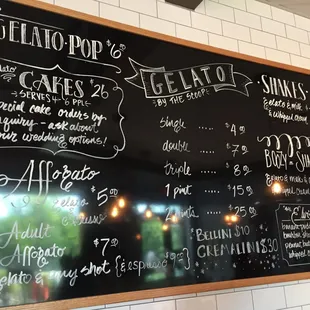 GELATO·POP $6
CAKES $26
SERVES 4-6 PPL
special cake orders by
inquiry - ask about
our wedding options!
Affogato
gelato & $5
espresso
Adult
Affogato $7
gelato & any shot {& espresso}
GELATO
BY THE SCOOP
single ..... $4
double ..... $7
triple ..... $8
1 pint ..... $15
2 pints ..... $25
BELLINI $10
CREMALINI $30
SHAKES
gelato & milk
& whipped cream
BOOZY-SHA
gelato & milk &
whipped cream
peanut butter
whipped